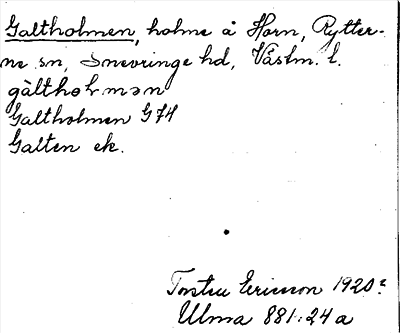 Galtholmen, holme å Horn, Rytter-
ne sn, Snevringe hd, Västm. l.
gàlthɷlmən
Galtholmen G74
Galten ek.
Torsten Ericsson 1920?
Ulma 881:24a